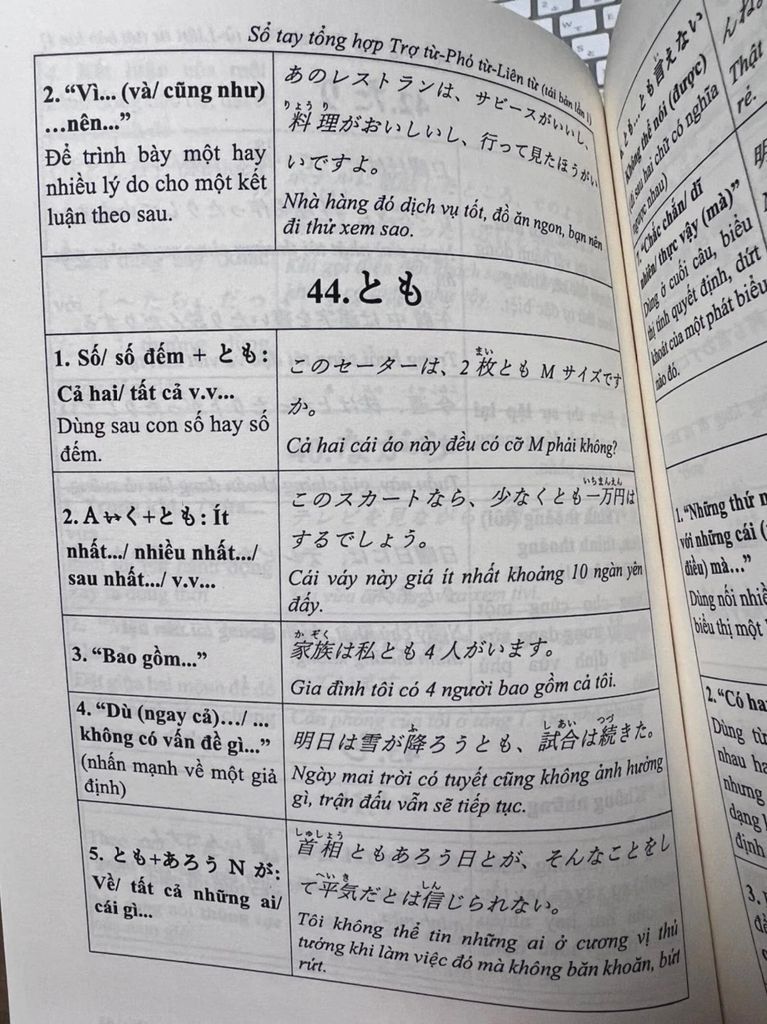 Sổ tay tổng hợp Trợ từ-Phó từ-Liên từ (tái bản lần 1)
2. “Vì... (và/ cũng như)
...nên...”
Để trình bày một hay
nhiều lý do cho một kết
luận theo sau.
あのレストランは、サビースがいいし、
りょうり
料理がおいしいし、行って見たほうがい
いですよ。
Nhà hàng đó dịch vụ tốt, đồ ăn ngon, bạn nên
đi thử xem sao.
44.とも
1. Số/ số đếm + とも:
Cả hai/ tất cả v.v...
Dùng sau con số hay số
đếm.
まい
このセーターは、2 枚とも M サイズです
か。
Cả hai cái áo này đều có cỡ M phải không?
2. A いく+とも: Ít
nhất.../ nhiều nhất.../
sau nhất.../ v.v...
いちまんえん
このスカートなら、少なくとも一万円は
するでしょう。
Cái váy này giá ít nhất khoảng 10 ngàn yên
đấy.
3. “Bao gồm...”
かぞく
家族は私とも 4 人がいます。
Gia đình tôi có 4 người bao gồm cả tôi.
4. “Dù (ngay cả).../ ...
không có vấn đề gì...”
(nhấn mạnh về một giả
định)
ふ しあい つづ
明日は雪が降ろうとも、試合は続きた。
Ngày mai trời có tuyết cũng không ảnh hưởng
gì, trận đấu vẫn sẽ tiếp tục.
5. とも+あろう N が:
Về/ tất cả những ai/
cái gì...
しゅしょう
首相ともあろう日とが、そんなことをし
へいき しん
て平気だとは信じられない。
Tôi không thể tin những ai ở cương vị thủ
tướng khi làm việc đó mà không băn khoăn, bứt
rứt.
とも...とも言えない
Không thể nói (được)
(đi sau hai chữ có nghĩa
ngược nhau)
7. “Chắc chắn/ dĩ
nhiên/ thực vậy (mà)”
Dùng ở cuối câu, biểu
thị tính quyết định, dứt
khoát của một phát biểu
nào đó.
Thật
rẻ.
明
1. “Những thứ n
với những cái (
điều) mà...”
Dùng nối nhiề
biểu thị một
2. “Có ha
Dùng từ
nhau ha
nhưng
dạng
định
3.